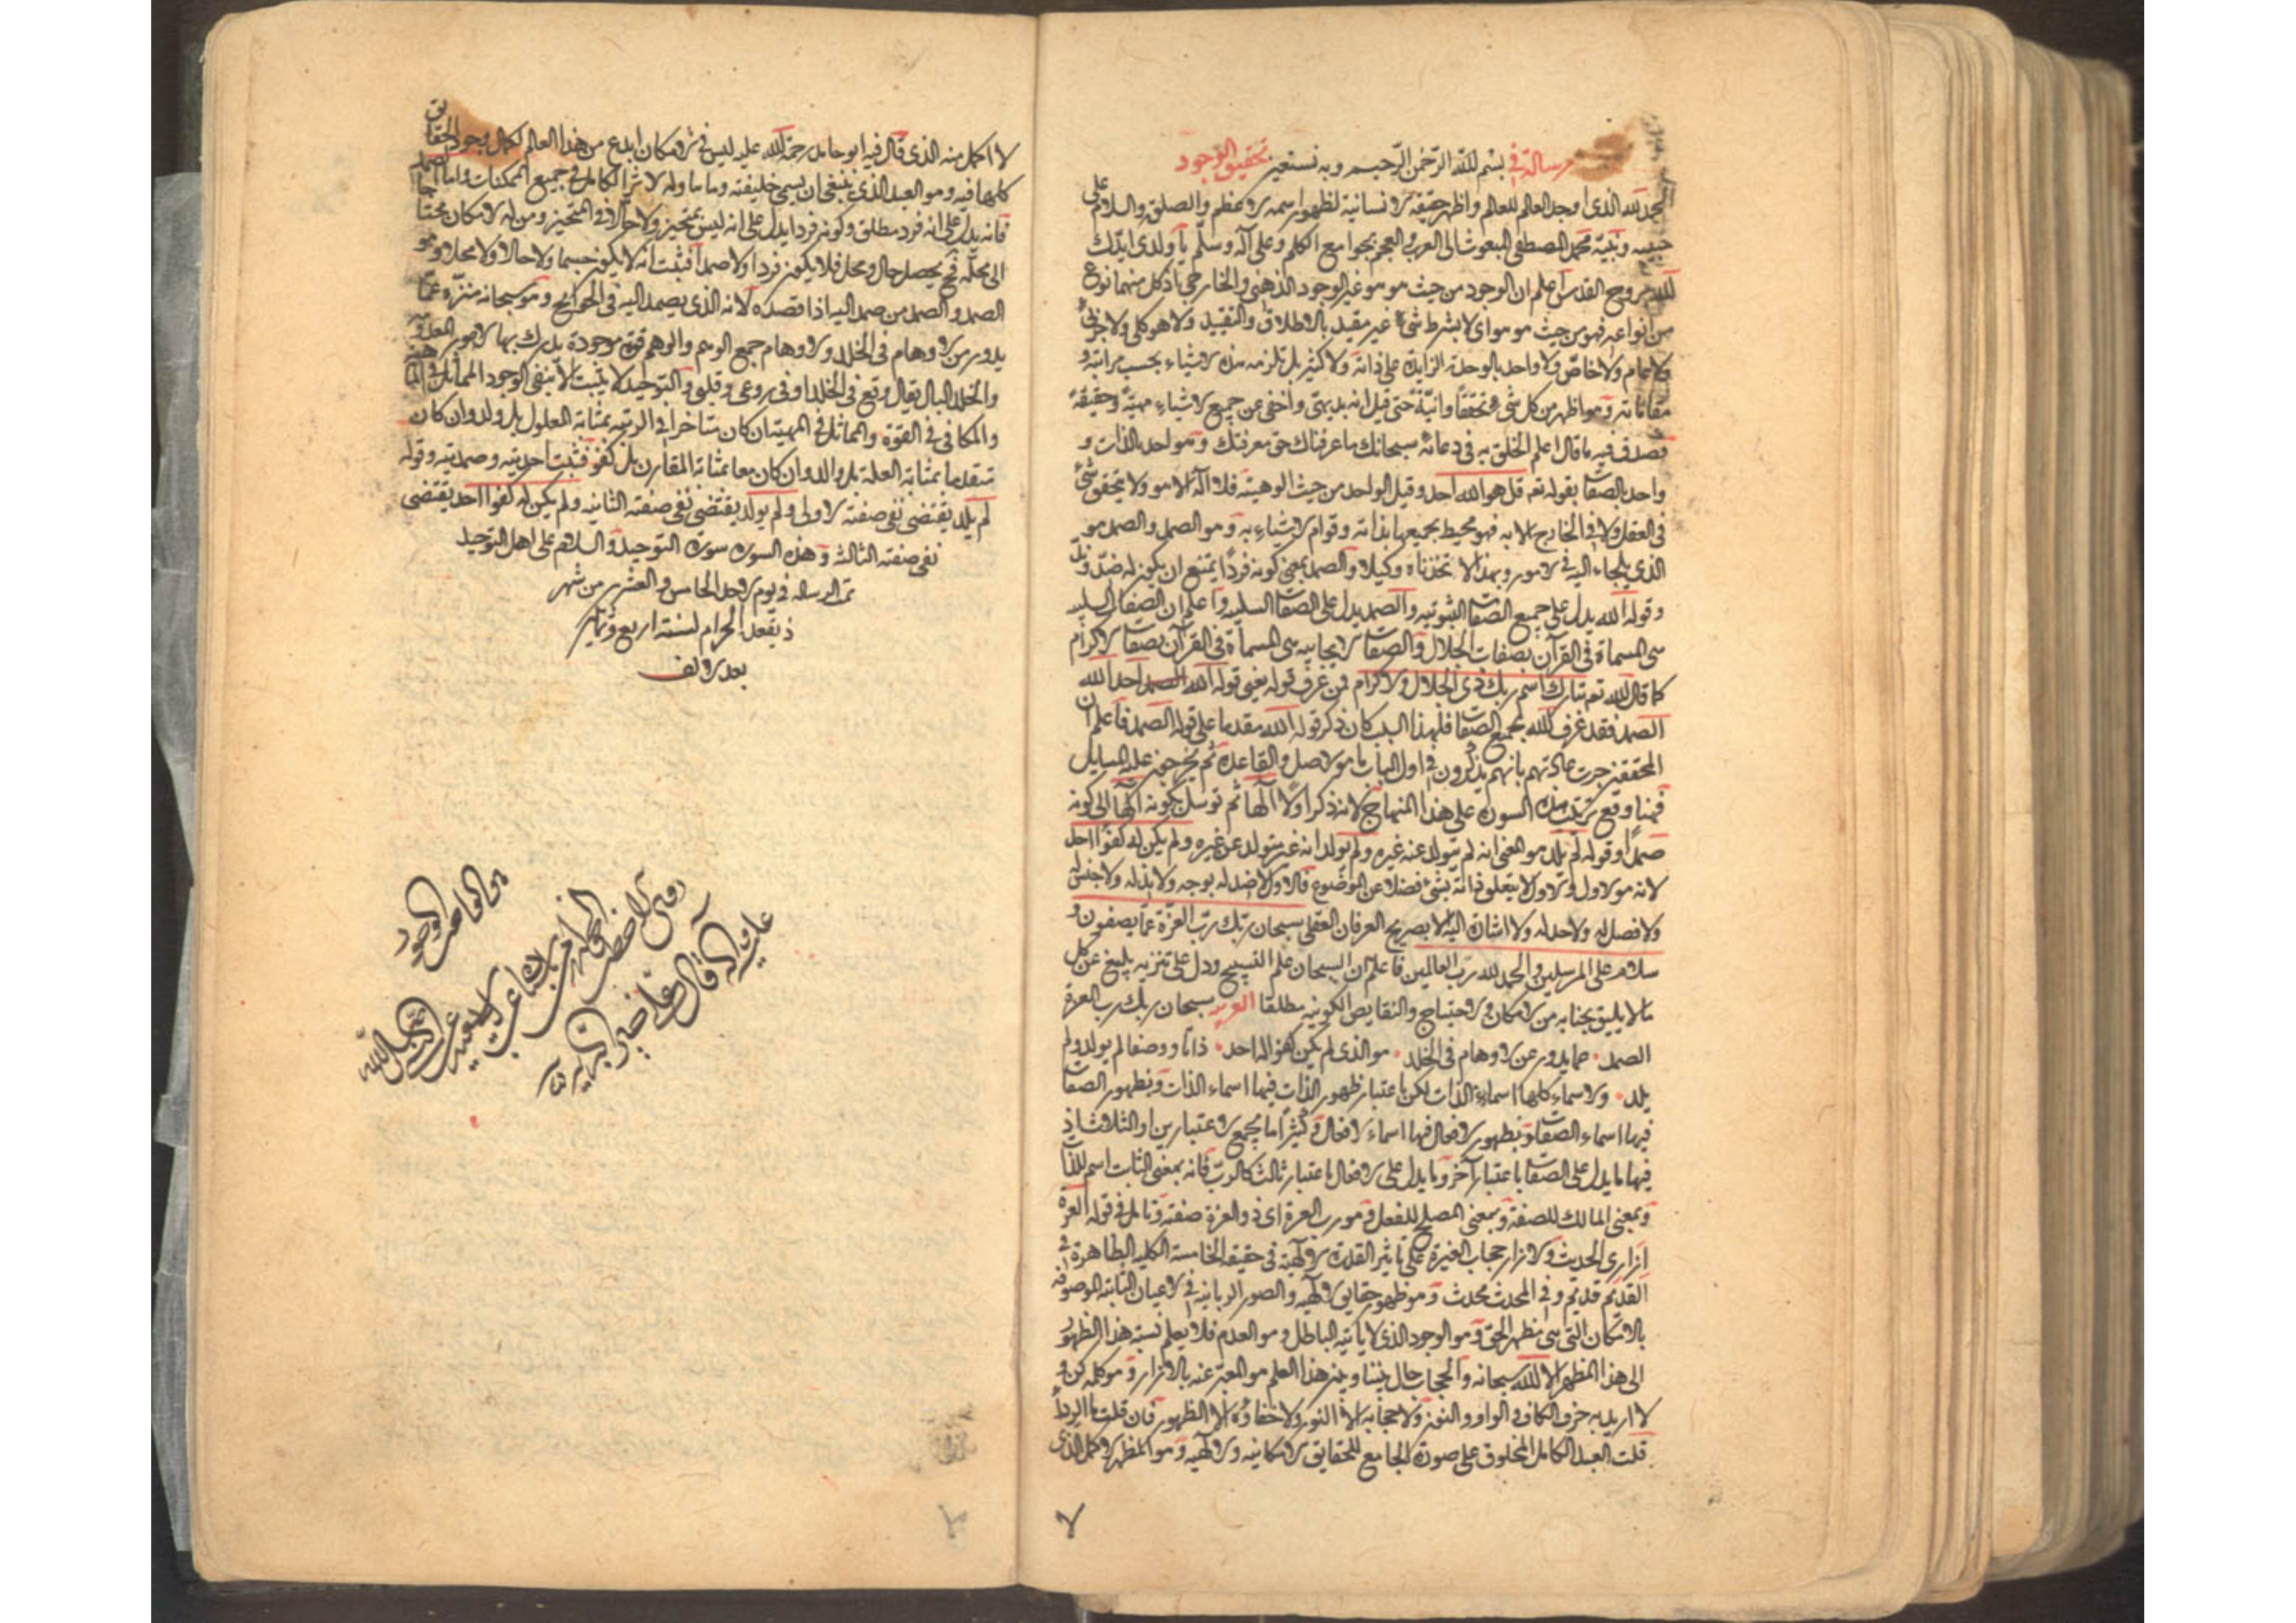 رسالة في بسم الله الرحمن الرحيم وبه نستعين تحقيق الوجود
الحمد لله الذى اوجد العالم للعالم واظهر حقيقة الانسانية لظهور اسمه الاعظم والصلوة والسلام على
حبيبه ونبيه محمد المصطفى المبعوث الى العرب والعجم بجوامع الكلم وعلى آله وسلم يا ولدى ايدك
الله بروح القدس اعلم ان الوجود من حيث هو هو غير الوجود الذهنى والخارجى اذ كل منهما نوع
من انواعه فهو من حيث هو هو اى لا بشرط شئ غير مقيد بالاطلاق والتقييد ولا هو كلى ولا جزئى
ولا عام ولا خاص ولا واحد بالوحدة الزايدة على ذاته ولا كثير بل تلزمه هذه الاشياء بحسب مراتبه و
مقاماته وهو اظهر من كل شئ تحققا وانية حتى قيل انه بديهى واخفى عن جميع الاشياء مهية وحقيقة
فصدق فيه ما قال اعلم الخلق به فى دعائه سبحانك ما عرفناك حق معرفتك وهو احد بالذات و
واحد بالصفات بقوله تعم قل هو الله احد وقيل الواحد من حيث الوهيته فلا اله الا هو ولا يتحقق شئ
فى العقل ولا فى الخارج الا به فهو محيط بجميعها بذاته وقوام الاشياء به وهو الصمد والصمد هو
الذى يلجاء اليه فى الامور وبهذا لا تخذناه وكيلا والصمد بمعنى كونه فردا يمتنع ان يكون له ضد وند
وقوله الله يدل على جميع الصفات الثبوتيه والصمد يدل على الصفات السلبيه واعلم ان الصفات السلبيه
هى المسماة فى القرآن بصفات الجلال والصفات الايجابيه هى المسماة فى القرآن بصفات الاكرام
كما قال الله تعم تبارك اسم ربك ذى الجلال والاكرام فمن عرف قوله يعنى قوله الله الصمد احد الله
الصمد فقد عرف الله بجميع الصفات فلهذا السبب كان ذكر قوله الله مقدما على قوله الصمد فاعلم ان
المحققين جرت عادتهم بانهم يذكرون فى اول الباب ما هو الاصل والقاعدة ثم يخرجون عليه المسايل
فهنا وقع ترتيب هذه السورة على هذا المنهاج لانه ذكر اولا الها ثم توسل بكونه الها الى كونه
صمدا وقوله لم يلد هو المعنى انه لم يتولد عنه غيره ولم يولد انه غير متولد عن غيره ولم يكن له كفوا احد
لانه هو الاول والاول لا يتعلق ذاته بشئ فضلا عن الموضوع فالاول لا ضد له بوجه ولا ند له ولا جنس له
ولا فصل له ولا حد له ولا اشارة اليه الا بصريح العرفان العقلى سبحان ربك رب العزة عما يصفون و
سلام على المرسلين والحمد لله رب العالمين فاعلم ان السبحان علم التسبيح ودل على تنزيه بليغ عن كل
ما لا يليق بجنابه من الامكان والاحتياج والنقايص الكونيه مطلقا سبحان ربك رب العزة
الصمد عما يدور عن الاوهام فى الخلد هو الذى لم يكن كفوا له احد ذاتا ووصفا لم يولد ولم
يلد والاسماء كلها اسماء الذات لكن باعتبار ظهور الذات فيها اسماء الذات وبظهور الصفات
فيها اسماء الصفات وبظهور الافعال فيها اسماء الافعال وكثيرا ما يجمع الاعتبارين او الثلاث اذ
فيها ما يدل على الصفات باعتبار آخر وما يدل على الافعال باعتبار ثالث كالرب فانه بمعنى الثابت اسم للذات
وبمعنى المالك للصفة وبمعنى المصلح للفعل وهو رب العزة اى ذو العزة صفته وتامل فى قوله العزة
ازارى الحديث والازار حجاب الغيرة على تاثير القدرة الالهية فى حقيقه الخامسة الكليه الظاهرة فى
القديم قديم وفى المحدث محدث وهو ظهور حقايق الالهيه والصور الربانيه فى الاعيان الثابته الموصوفه
بالامكان التى هى مظهر الحق وهو الوجود الذى لا ياتيه الباطل وهو العدم فلا يعلم نسبة هذا الظهور
الى هذا المظهر الا الله سبحانه والحجاب حال بيننا وبين هذا العلم هو المعبر عنه بالازار وهو كلمه كن و
لا اريد به حرف الكاف والواو والنون ولا حجابه الا النور ولا خفاؤه الا الظهور فان قلت ما الرداء
قلت العبد الكامل المخلوق على صورة الجامع للحقايق الامكانيه والالهيه وهو المظهر الاكمل الذى
لا
لا اكمل منه الذى قال فيه ابو حامد رحمة الله عليه ليس فى الامكان ابدع من هذا العالم لكمال وجود الحقايق
كلها فيه وهو العبد الذى ينبغى ان يسمى خليفته وله الاثر الكامل فى جميع الممكنات واما الصمد
فانه يدل على انه فرد مطلق وكونه فردا يدل على انه ليس بمتحيز ولا حالا فى المتحيز ومن له الامكان محتاجا
الى محله فح يحصل حال ومحل فلا يكون فردا ولا صمدا فثبت انه لا يكون جسما ولا حالا ولا محلا وهو
الصمد والصمد من صمد اليه اذا قصده لانه الذى يصمد اليه فى الحوايج وهو سبحانه منزه عما
يدور من الاوهام فى الخلد والاوهام جمع الوهم والوهم قوة موجودة يدرك بها الامور المعدومة
والخلد البال يقال وقع فى الخلد اى فى روعى وقلبى والتوحيد لا يثبت الا بنفى الوجود المماثل فى
والمكافى فى القوة والمماثل فى المهية ان كان متاخرا فى الرتبه بمثابة المعلول بل ولد وان كان
متقدما بمثابة العلة بل والد وان كان معا بمثابة المقارن بل كفو فثبت احديته وصمديته وقوله
لم يلد يقتضى نفى صفته الاولى ولم يولد يقتضى نفى صفته الثانيه ولم يكن له كفوا احد يقتضى
نفى صفته الثالثه وهذه السورة سورة التوحيد والسلام على اهل التوحيد
تمت الرساله فى يوم الاحد الخامس والعشرين من شهر
ذيقعد الحرام لسنة اربع وثمانين
بعد الالف